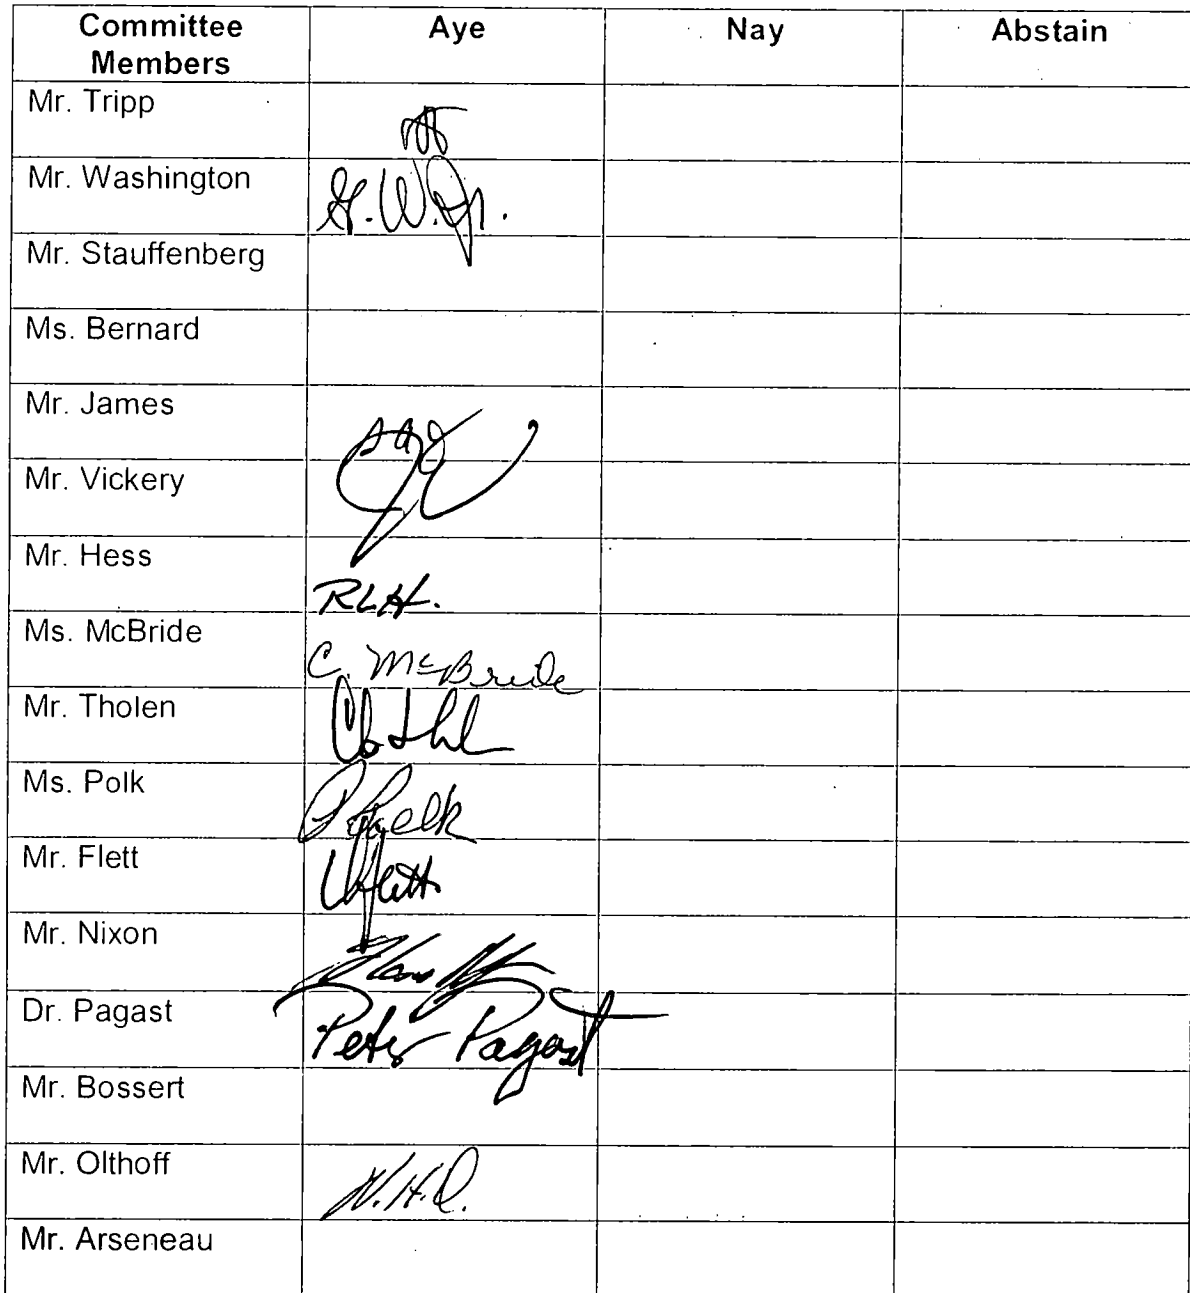 Committee Members Aye Nay Abstain
Mr. Tripp
Mr. Washington G.W.Jr.
Mr. Stauffenberg
Ms. Bernard
Mr. James
Mr. Vickery
Mr. Hess RLH.
Ms. McBride C. McBride
Mr. Tholen
Ms. Polk
Mr. Flett
Mr. Nixon
Dr. Pagast Peter Pagast
Mr. Bossert
Mr. Olthoff
Mr. Arseneau